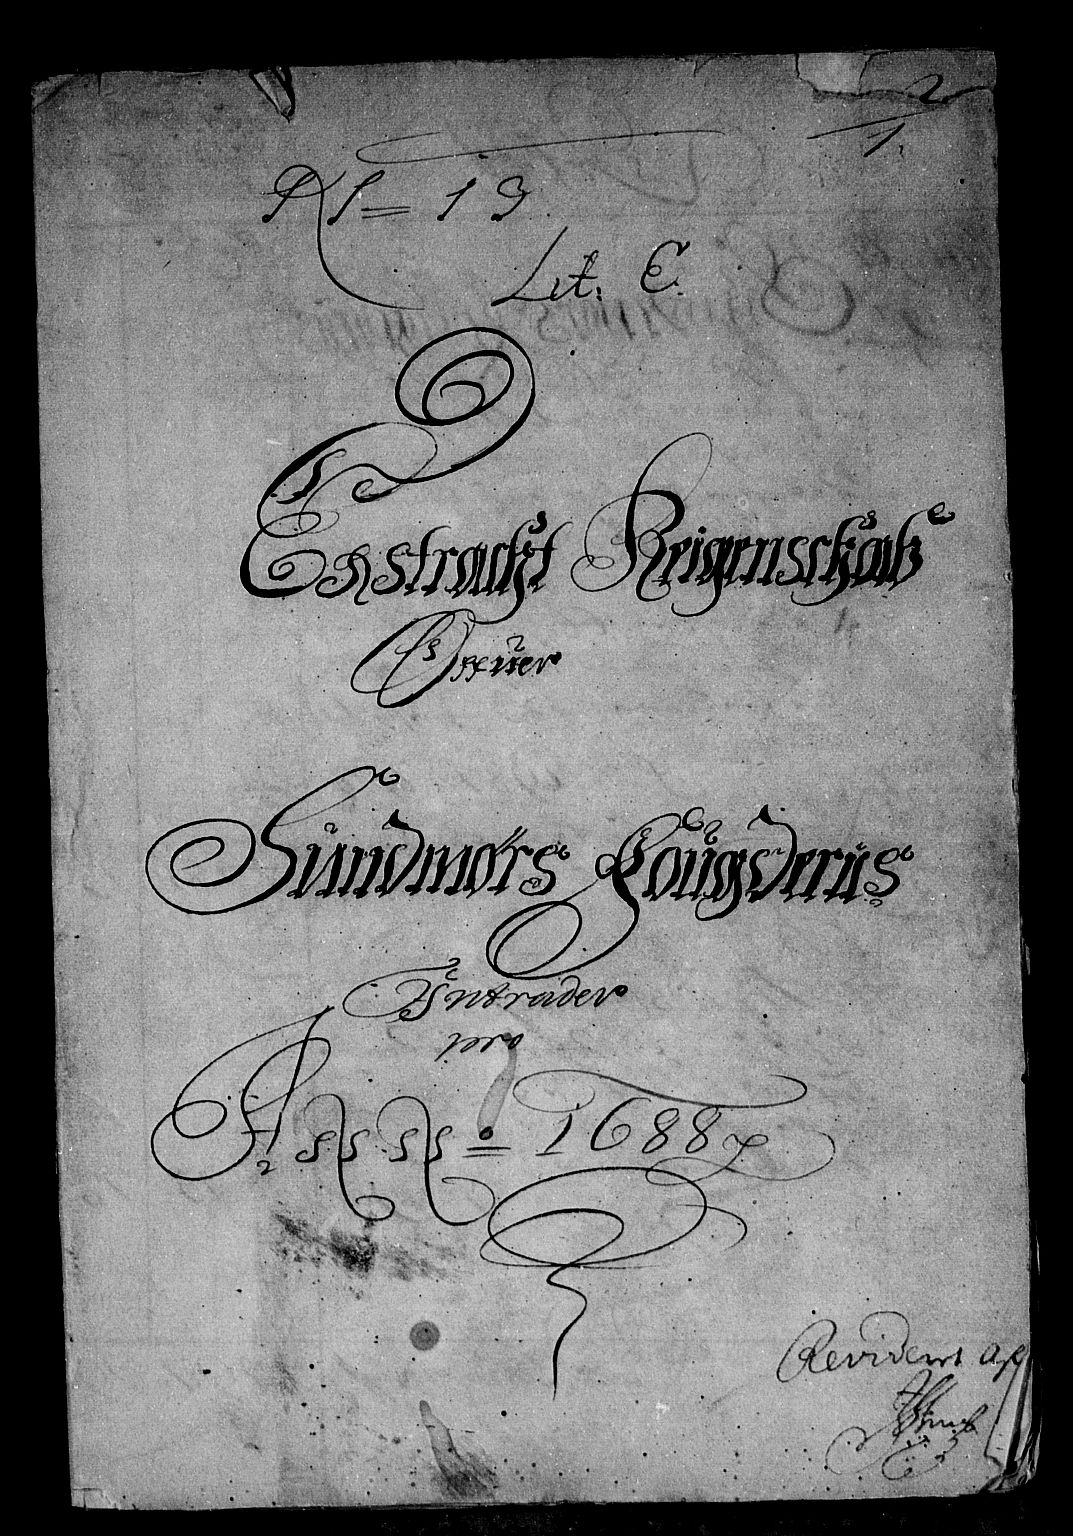 2
1.
N = 19
Lit: C.
Exstrackt Reigenschab
Offuer
Sundmørs Fougderies
Intrader
pro
Anno = 1688
Revideret af